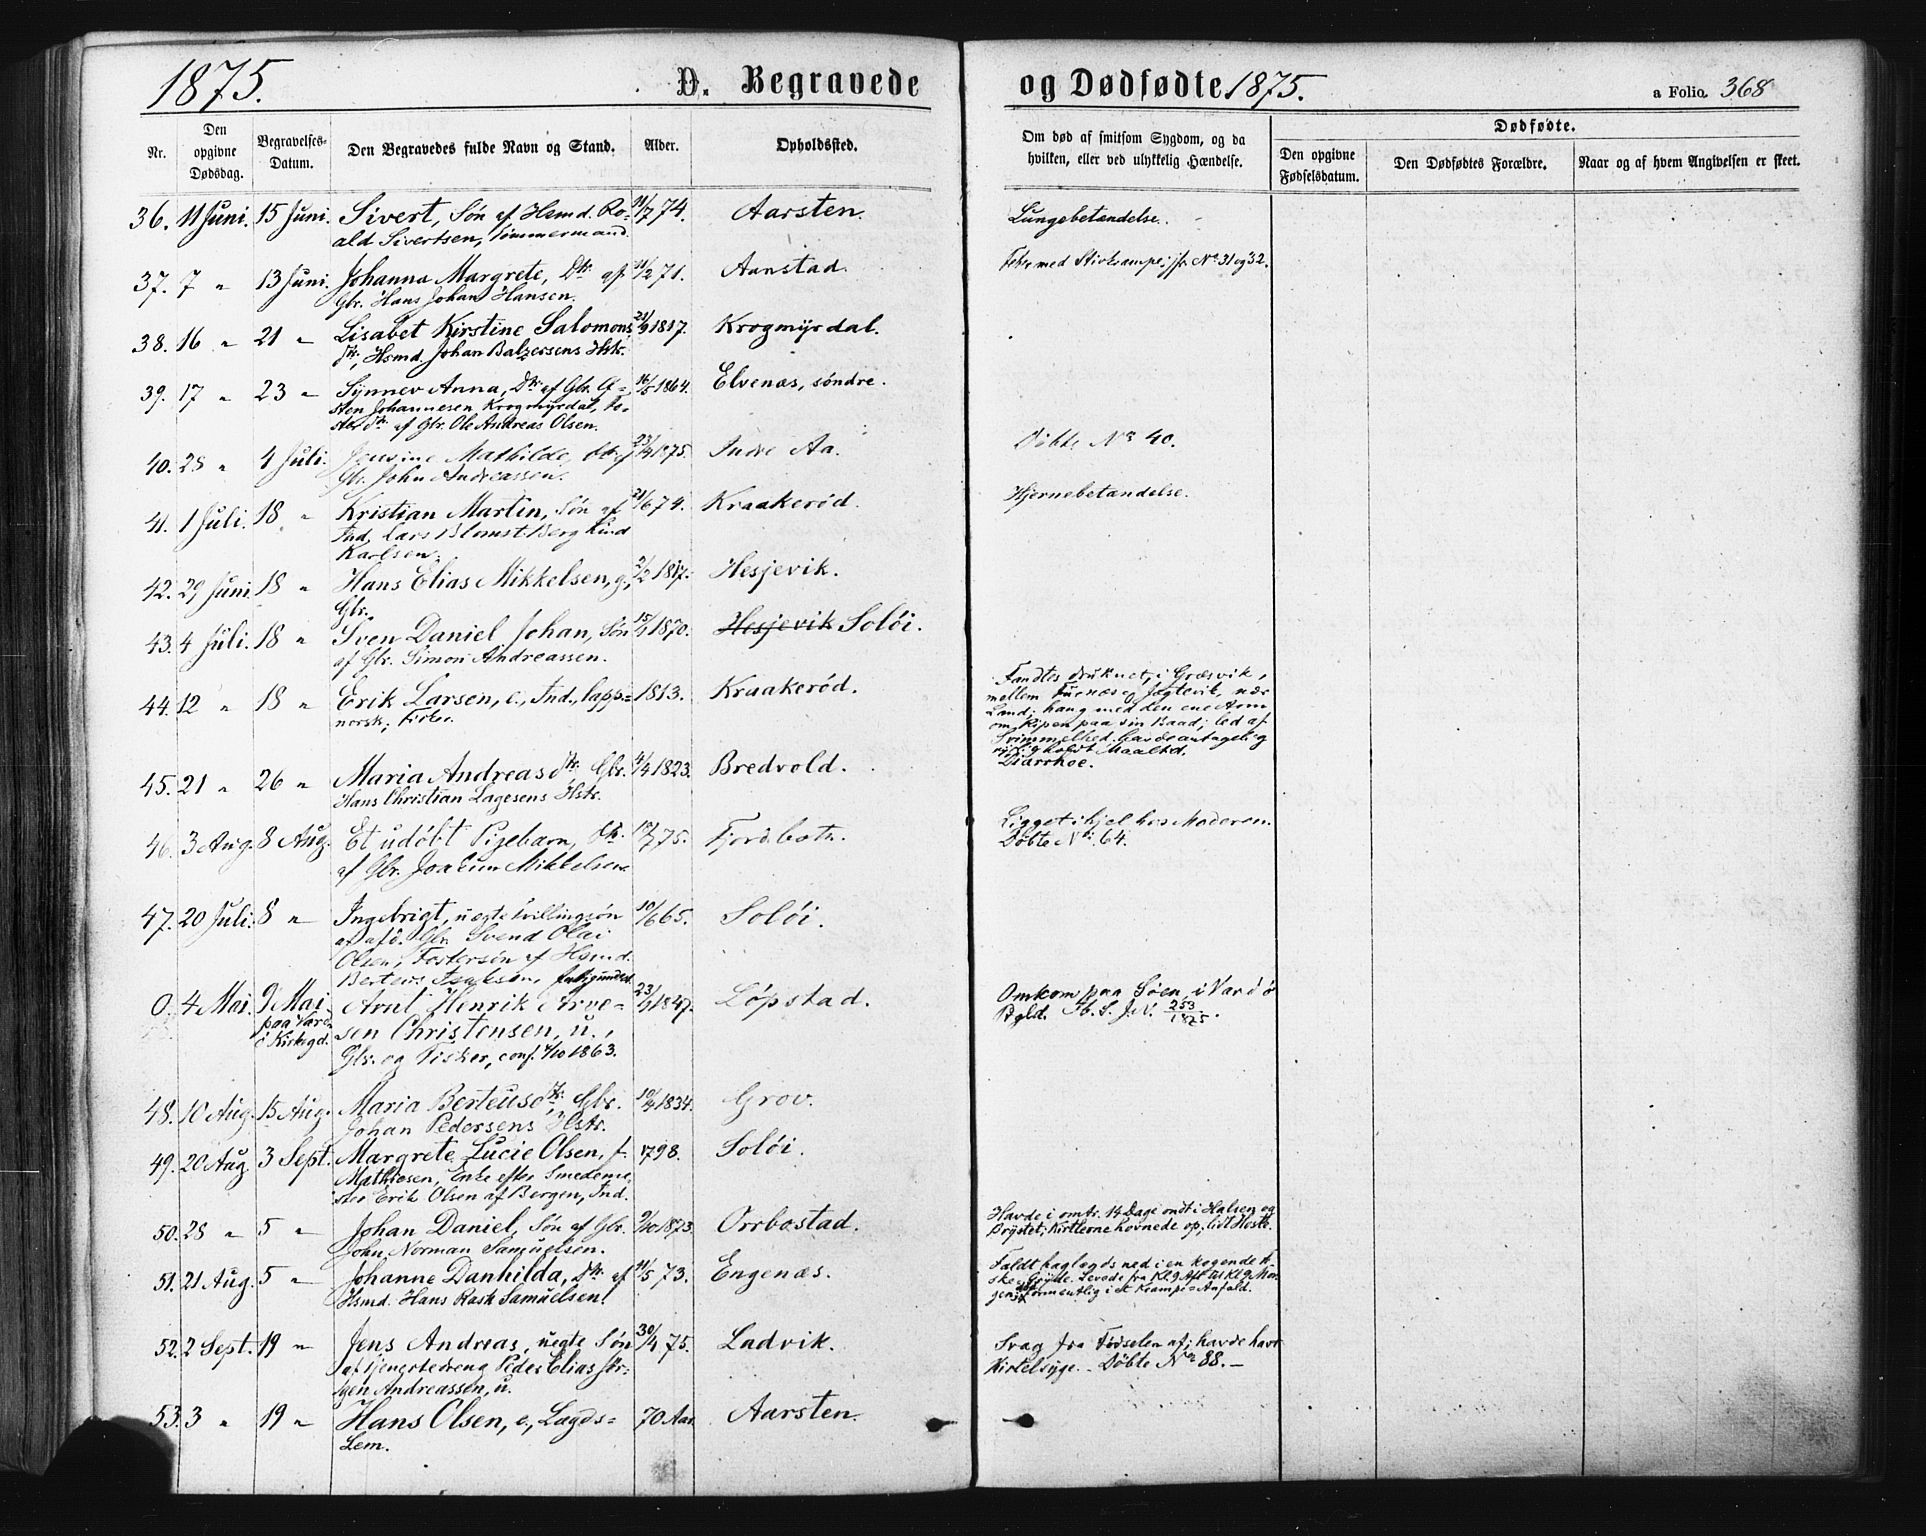 1875.
D. Begravede
og Dødfødte 1875.
a Folio 368
Nr.
Den opgivne Dødsdag.
Begravelses-Datum.
Den Begravedes fulde Navn og Stand.
Alder.
Opholdsted.
Om død af smitsom Sygdom, og da hvilken, eller ved ulykkelig Hændelse.
Dødfødte.
Den opgivne Fødselsdatum.
Den Dødfødtes Forældre.
Naar og af hvem Angivelsen er skeet.
36. 11 Juni. 15 Juni. Sivert, Søn af Hsmd. Ro- 11/7 74. Aarsten. Lungebetændelse.
ald Sivertsen, Tømmermand.
37. 7 " 13 Juni. Johanna Margrete, Dtr. af 11/2 71. Aanstad. med Stivkrampe, jfr. No. 31 og 32.
Gbr. Hans Johan Hansen.
38. 16 " 21 " Lisabet Kirstine Salomons 21/9 1817. Krogmyrdal.
dtr., Hsmd. Johan Balzersens Hstr.
39. 17 " 23 " Synnev Anna, Dtr. af Gbr. 16/5 1864. Elvenæs, søndre.
sten Johannesen Krogmyrdal, Fo-
ster dtr. af Gbr. Ole Andreas Olsen.
40. 28 " 4 Juli. Jensine Mathilde, dtr. af 23/4 1875. Indre Aa. Døbte No 40.
Gbr. John Andreassen.
41. 1 Juli. 18 " Kristian Martin, Søn af 21/6 74. Kraakerød. Hjernebetændelse.
Ind. Lars Blomst-Berg Lund
Karlsen.
42. 29 Juni. 18 " Hans Elias Mikkelsen, g., 2/2 1817. Hesjevik.
Gbr.
43. 4 Juli. 18 " Sven Daniel Johan, Søn 15/1 1870. Hesjevik Soløi.
af Gbr. Simon Andreassen.
44. 12 " 18 " Erik Larsen, e., Ind., lapp- 1813. Kraakerød.
norsk, Fisker.
Fandtes druknet, i Græsvik,
mellem Furnæs og Jægtevik, nær
Land; hang med den ene Arm
om Ripen paa sin Baad; led af
Svimmelhed. Havde antagelig
Maaltid.
Diarrhoe.
45. 21 " 26 " Maria Andreasdtr. Gbr. 4/4 1823. Bredvold.
Hans Christian Lagesens Hstr.
46. 3 Aug. 8 Aug. Et udøbt Pigebarn, Dtr. 19/7 75. Fjordbotn. Ligget ihjel hos Moderen.
af Gbr. Joakim Mikkelsen. Døbte No. 64.
47. 20 Juli. 8 " Ingebrigt, uægte Tvillingsøn 10/6 65. Soløi.
af afd. Gbr. Svend Olai
Olsen; Fostersøn af Hsmd.
Berteus Isaksen,
0. 4 Mai. 9 Mai. Arnt Henrik Arve- 23/1 1847. Løpstad. Omkom paa Søen, i Vardø
paa Vard- sen Christensen, u., Pgld. 253/1875.
ø Kirkegd. Gbr. og Fisker, conf. 4/10 1863.
48. 10 Aug. 15 Aug. Maria Berteusdtr., Gbr. 10/4 1834. Grov.
Johan Pedersens Hstr.
49. 20 Aug. 3 Sept. Margrete Lucie Olsen, f. 1798. Soløi.
Mathiesen, Enke efter Smedeme-
ster Erik Olsen af Bergen, Ind.
50. 28 " 5 " Johan Daniel, Søn af Gbr. 9/10 1873. Orrbostad. Havde i omtr. 14 Dage ondt i Halsen og
John Norman Samuelsen. Brystet; Kirtlerne hovnede op; lidt Hoste.
51. 21 Aug. 5 " Johanne Danhilda, Dtr. af 11/5 73. Engenæs. Faldt baglængs ned i en kogende Fi-
Hsmd. Hans Rask Samuelsen. ske-Gryde. Levede fra Kl. 9 Aft. til Kl. 9 Mor-
gen; formentlig i et Krampe-Anfald.
52. 2 Sept. 19 " Jens Andreas, uægte Søn 30/4 75. Ladvik. Svag fra Fødselen af; havde havt
af tjenstedreng Peder Elias Jør- Kirtelsyge. Døbte No. 88. -
gen Andreassen, u.
53. 3 " 19 " Hans Olsen, e., Lægds- 70 Aar. Aarsten.
Lem.